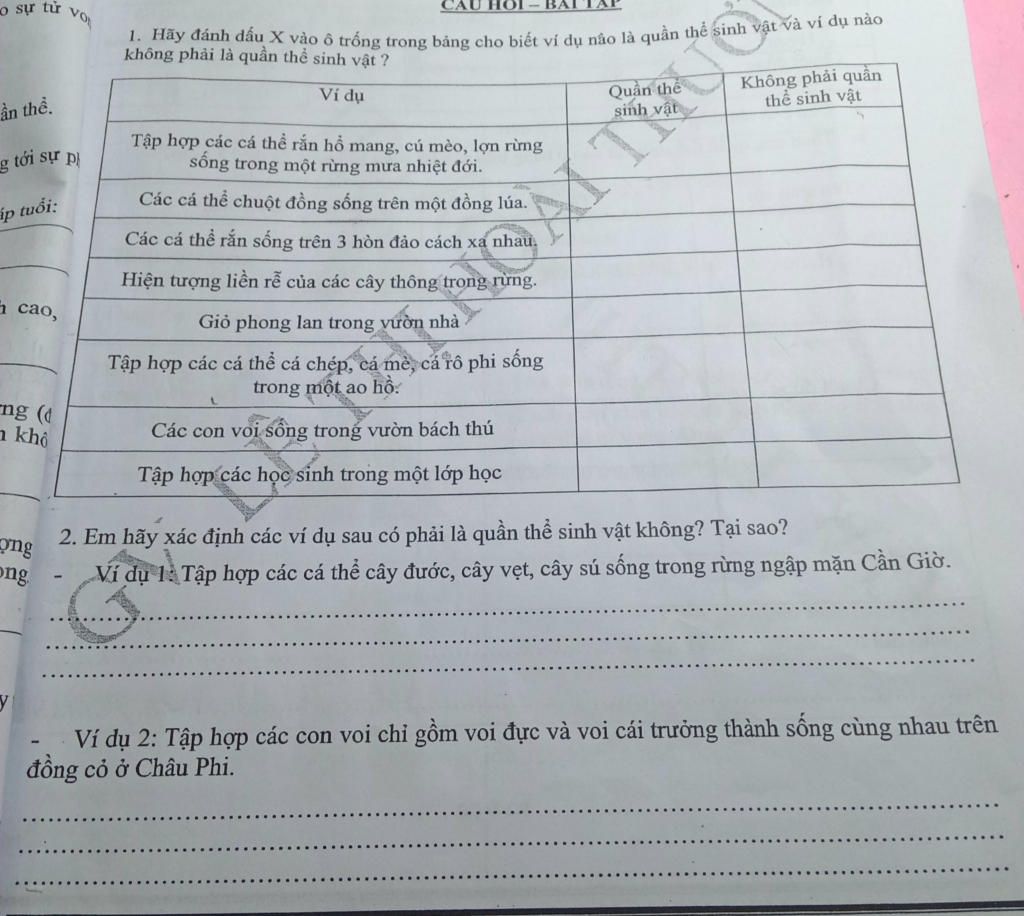 CÂU HỎI – BÀI TẬP
1. Hãy đánh dấu X vào ô trống trong bảng cho biết ví dụ nâo là quần thể sinh vật và ví dụ nào
không phải là quần thể sinh vật ?
Ví dụ
Quần thể
sinh vật
Không phải quần
thể sinh vật
Tập hợp các cá thể rắn hổ mang, cú mèo, lợn rừng
sống trong một rừng mưa nhiệt đới.
Các cá thể chuột đồng sống trên một đồng lúa.
Các cá thể rắn sống trên 3 hòn đảo cách xa nhau.
Hiện tượng liền rễ của các cây thông trong rừng.
Giỏ phong lan trong vườn nhà
Tập hợp các cá thể cá chép, cá mè, cá rô phi sống
trong một ao hồ.
Các con voi sống trong vườn bách thú
Tập hợp các học sinh trong một lớp học
2. Em hãy xác định các ví dụ sau có phải là quần thể sinh vật không? Tại sao?
- Ví dụ 1: Tập hợp các cá thể cây đước, cây vẹt, cây sú sống trong rừng ngập mặn Cần Giờ.
- Ví dụ 2: Tập hợp các con voi chỉ gồm voi đực và voi cái trưởng thành sống cùng nhau trên
đồng cỏ ở Châu Phi.
GV LÊ THỊ HOÀI THƯƠ
sự tử
ần thể.
g tới sự
áp tuổi:
cao,